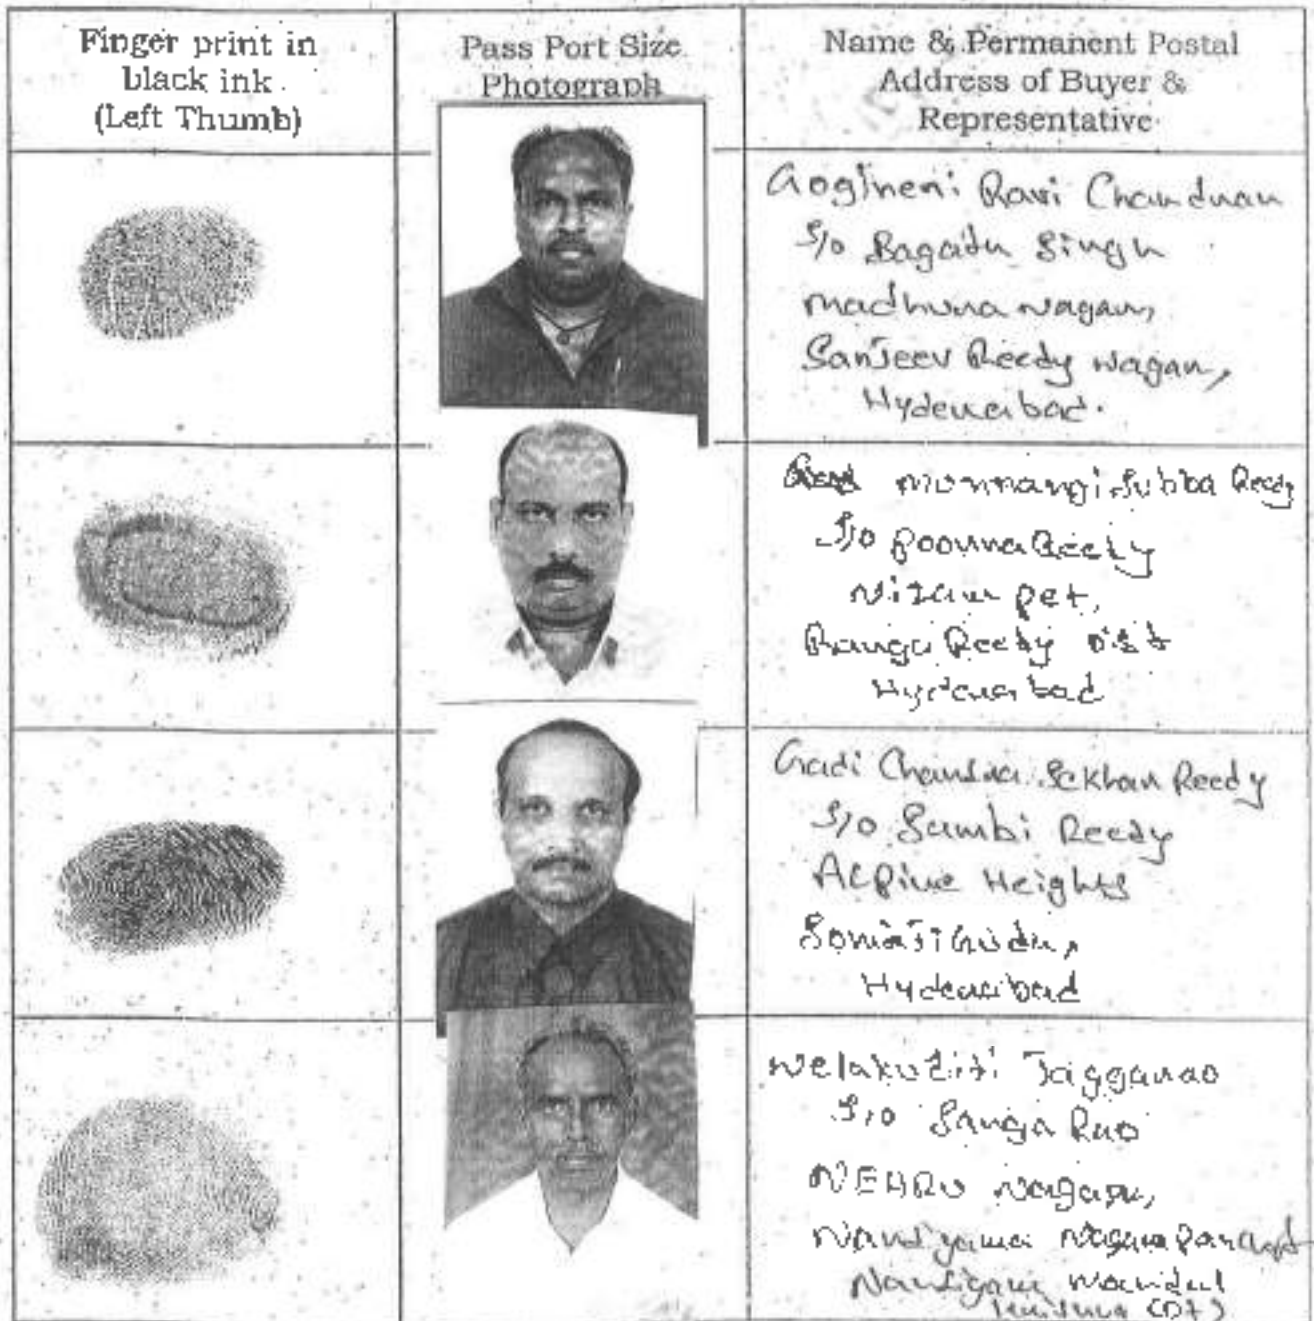 Finger print in
black ink
(Left Thumb)
Pass Port Size
Photograph
Name & Permanent Postal
Address of Buyer &
Representative
Gogineni Ravi Chandran
S/o Bagath Singh
madhura nagar,
Sanjeev Reedy nagar,
Hyderabad.
munnangi Subba Reedy
S/o poorna Reedy
Nizam pet,
Ranga Reedy Dist
Hyderabad
Gadi Chandra Sekhar Reedy
S/o Sambi Reedy
Alpine Heights
Somajiguda,
Hyderabad
Nelakuditi Jaggarao
S/o Sanga Rao
NEHRU Nagar,
Nandigama Nagara
Nandigama Mandal
(Dt)